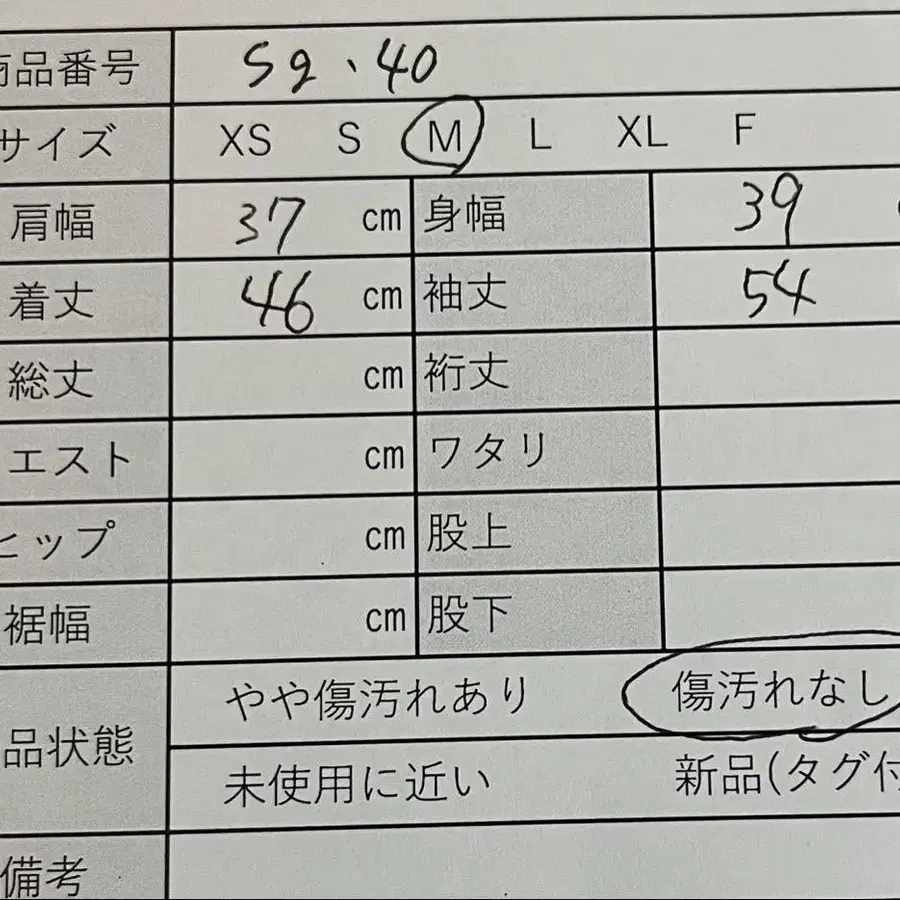 商品番号 Sg、40
サイズ XS S M L XL F
肩幅 37 cm 身幅 39
着丈 46 cm 袖丈 54
総丈 cm 裄丈
エスト cm ワタリ
ヒップ cm 股上
裾幅 cm 股下
やや傷汚れあり 傷汚れなし
品状態
未使用に近い 新品(タグ付
備考